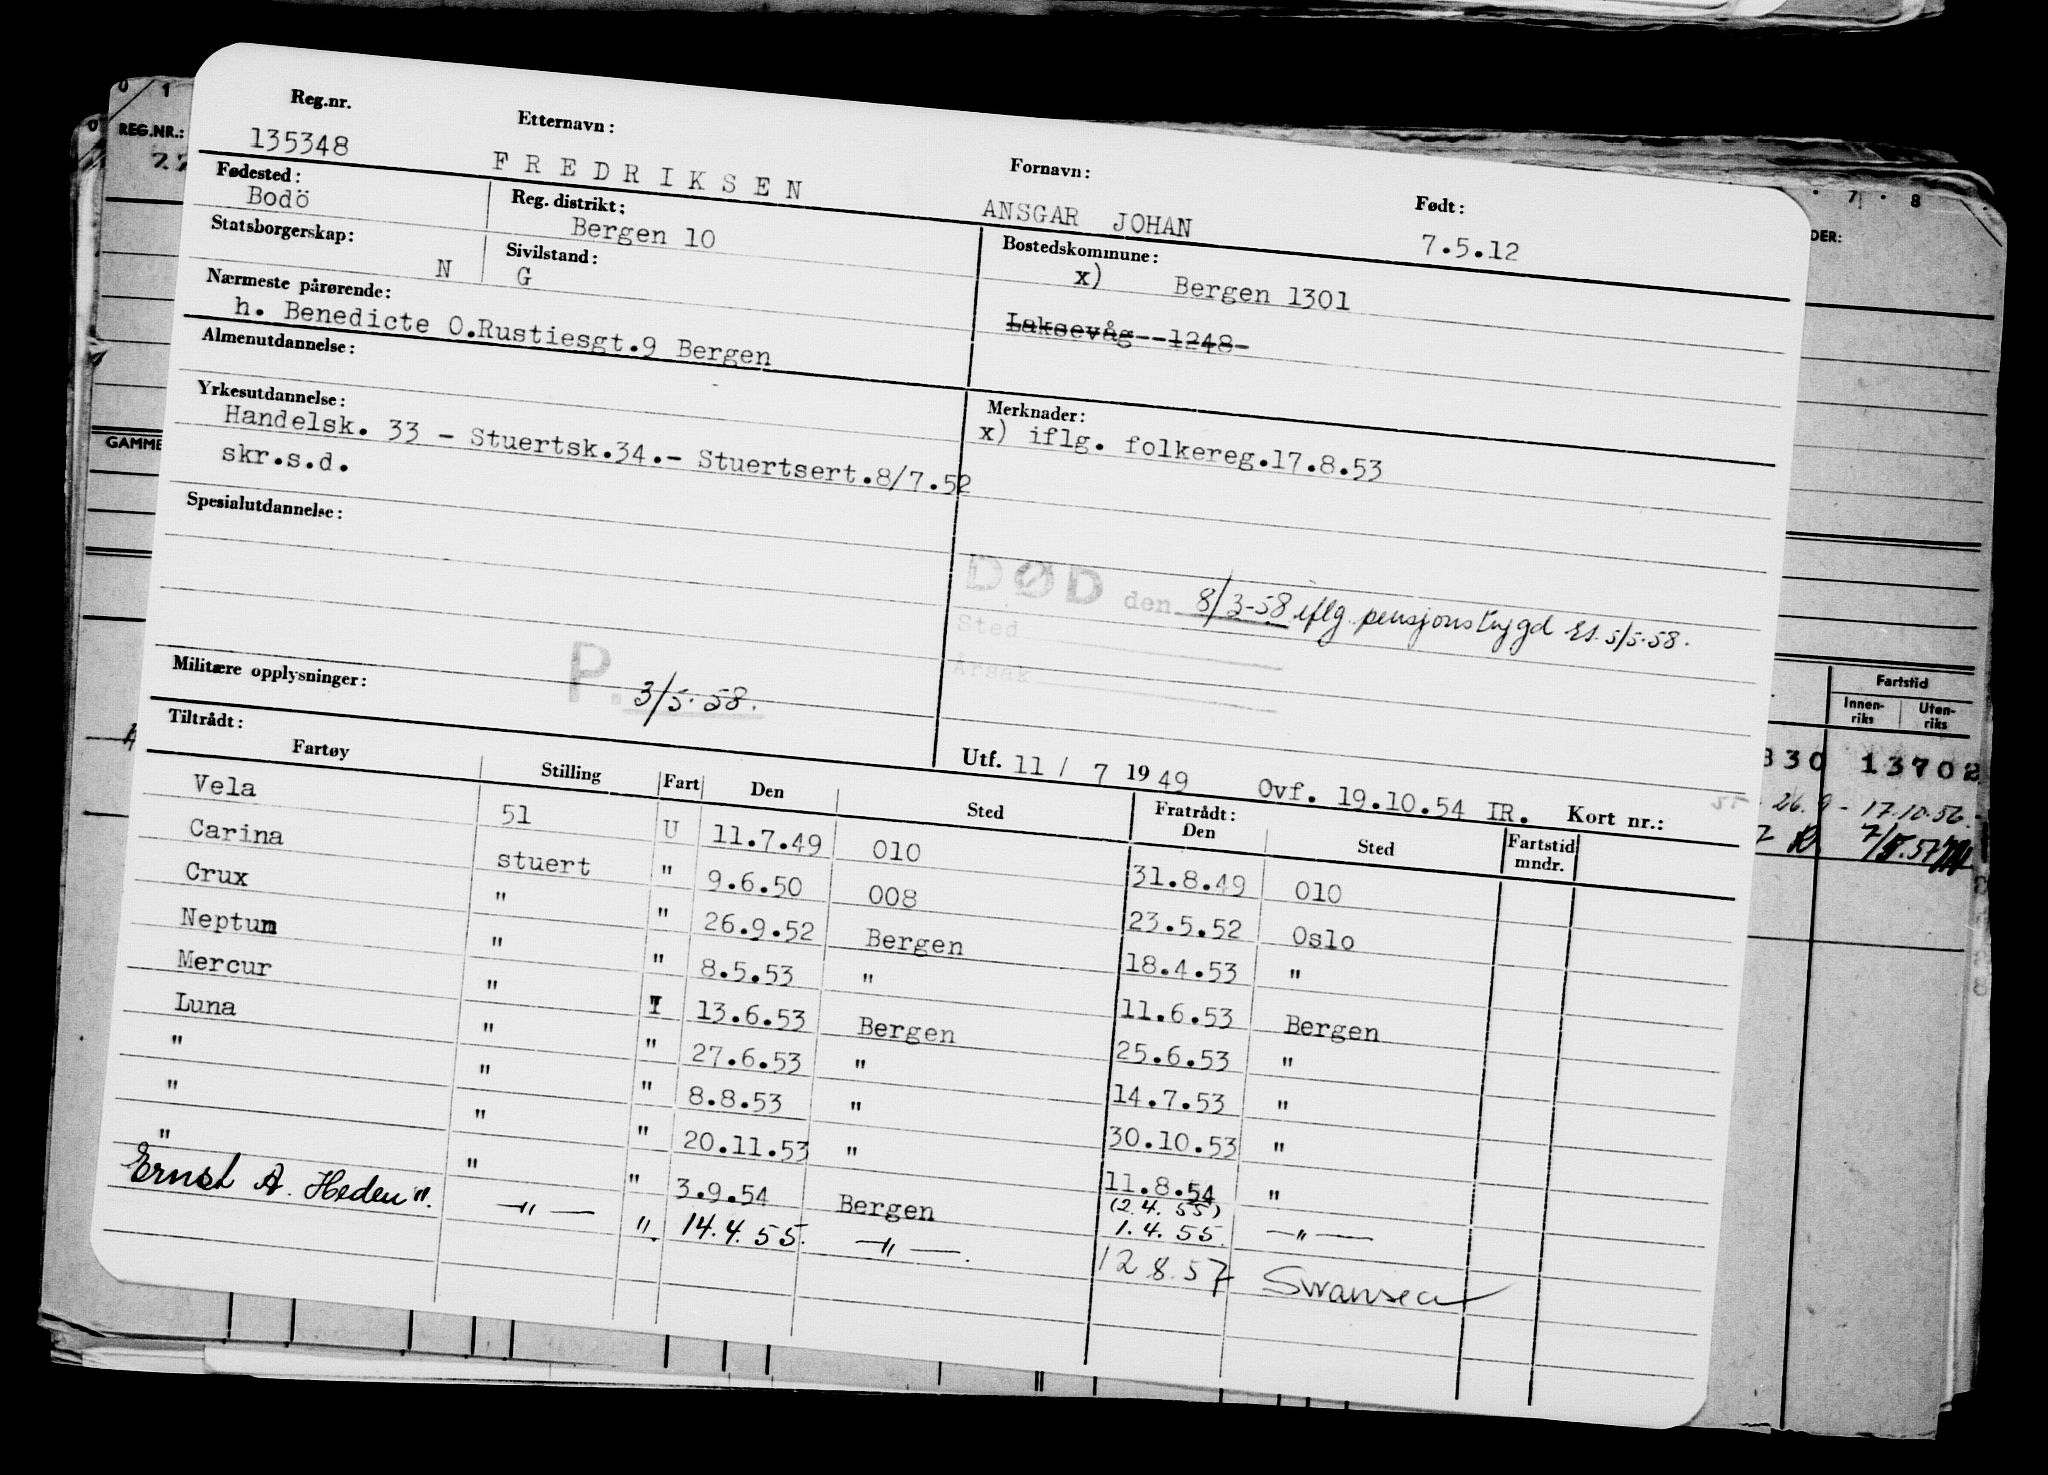 Reg.nr. Etternavn: Fornavn: Født:
135348 FREDRIKSEN ANSGAR JOHAN 7.5.12
Fødested: Reg. distrikt: Bostedskommune:
Bodö Bergen 10 x) Bergen 1301
Statsborgerskap: Sivilstand:
N G Laksevåg--1248-
Nærmeste pårørende:
h. Benedicte O.Rustiesgt.9 Bergen
Almenutdannelse:
Yrkesutdannelse: Merknader:
Handelsk. 33 - Stuertsk.34.- Stuertsert.8/7.52 x) iflg. folkereg.17.8.53
skr.s.d.
Spesialutdannelse:
DØD den 8/3-58 iflg pensjonstrygd Es. 5/5-58.
Sted
Årsak
Militære opplysninger: P. 3/5.58.
Tiltrådt: Utf. 11 / 7 1949 Ovf. 19.10.54 IR. Kort nr.:
Fartøy Stilling Fart Den Sted Fratrådt: Den Sted Fartstid mndr.
Vela 51 U 11.7.49 010 31.8.49 010
Carina stuert " 9.6.50 008 23.5.52 Oslo
Crux " " 26.9.52 Bergen 18.4.53 "
Neptun " " 8.5.53 " 11.6.53 Bergen
Mercur " I 13.6.53 Bergen 25.6.53 "
Luna " " 27.6.53 " 14.7.53 "
" " " 8.8.53 " 30.10.53 "
" " " 20.11.53 " 11.8.54 "
" " " 3.9.54 Bergen (2.4.55) 1.4.55 -"-
Ernst A. Heden". -"- " 14.4.55. -"-. 12 8.57 Swansea
REG.NR.:
GAMME
0 1
0
7 8
DER:
Fartstid
Innen-riks Uten-riks
330 13702
26.9 - 17.10.56.